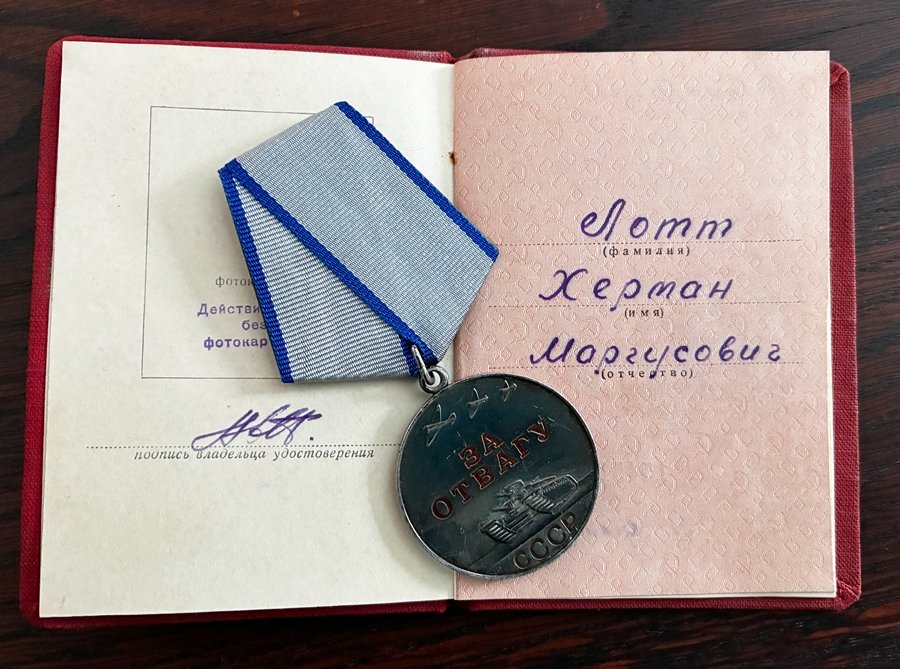 фото
Действи
без
фотокар
подпись владельца удостоверения
Лотт
(фамилия)
Херман
(имя)
Маргусович
(отчество)
ЗА
ОТВАГУ
СССР